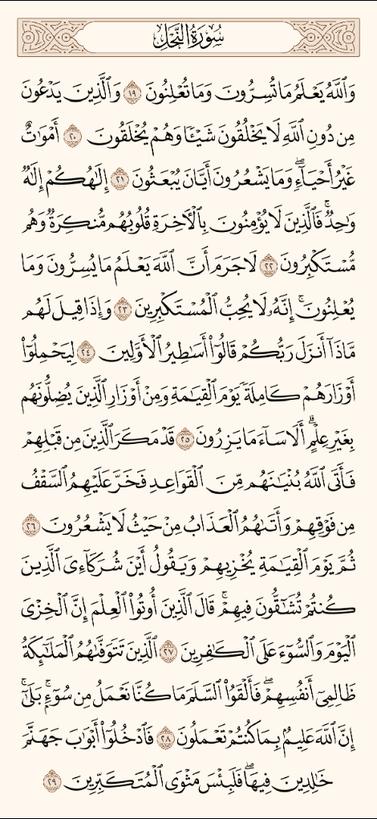 سُورَةُ النَّحْلِ
وَٱللَّهُ يَعْلَمُ مَا تُسِرُّونَ وَمَا تُعْلِنُونَ ١٩ وَٱلَّذِينَ يَدْعُونَ
مِن دُونِ ٱللَّهِ لَا يَخْلُقُونَ شَيْـًٔا وَهُمْ يُخْلَقُونَ ٢٠ أَمْوَٰتٌ
غَيْرُ أَحْيَآءٍ ۖ وَمَا يَشْعُرُونَ أَيَّانَ يُبْعَثُونَ ٢١ إِلَٰهُكُمْ إِلَٰهٌ
وَٰحِدٌ ۚ فَٱلَّذِينَ لَا يُؤْمِنُونَ بِٱلْأَخِرَةِ قُلُوبُهُم مُّنكِرَةٌ وَهُم
مُّسْتَكْبِرُونَ ٢٢ لَا جَرَمَ أَنَّ ٱللَّهَ يَعْلَمُ مَا يُسِرُّونَ وَمَا
يُعْلِنُونَ ۚ إِنَّهُۥ لَا يُحِبُّ ٱلْمُسْتَكْبِرِينَ ٢٣ وَإِذَا قِيلَ لَهُم
مَّاذَآ أَنزَلَ رَبُّكُمْ ۙ قَالُوٓا۟ أَسَٰطِيرُ ٱلْأَوَّلِينَ ٢٤ لِيَحْمِلُوٓا۟
أَوْزَارَهُمْ كَامِلَةً يَوْمَ ٱلْقِيَٰمَةِ ۙ وَمِنْ أَوْزَارِ ٱلَّذِينَ يُضِلُّونَهُم
بِغَيْرِ عِلْمٍ ۗ أَلَا سَآءَ مَا يَزِرُونَ ٢٥ قَدْ مَكَرَ ٱلَّذِينَ مِن قَبْلِهِمْ
فَأَتَى ٱللَّهُ بُنْيَٰنَهُم مِّنَ ٱلْقَوَاعِدِ فَخَرَّ عَلَيْهِمُ ٱلسَّقْفُ
مِن فَوْقِهِمْ وَأَتَىٰهُمُ ٱلْعَذَابُ مِنْ حَيْثُ لَا يَشْعُرُونَ ٢٦
ثُمَّ يَوْمَ ٱلْقِيَٰمَةِ يُخْزِيهِمْ وَيَقُولُ أَيْنَ شُرَكَآءِىَ ٱلَّذِينَ
كُنتُمْ تُشَٰٓقُّونَ فِيهِمْ ۚ قَالَ ٱلَّذِينَ أُوتُوا۟ ٱلْعِلْمَ إِنَّ ٱلْخِزْىَ
ٱلْيَوْمَ وَٱلسُّوٓءَ عَلَى ٱلْكَٰفِرِينَ ٢٧ ٱلَّذِينَ تَتَوَفَّىٰهُمُ ٱلْمَلَٰٓئِكَةُ
ظَالِمِىٓ أَنفُسِهِمْ ۖ فَأَلْقَوُا۟ ٱلسَّلَمَ مَا كُنَّا نَعْمَلُ مِن سُوٓءٍۭ ۚ بَلَىٰٓ
إِنَّ ٱللَّهَ عَلِيمٌۢ بِمَا كُنتُمْ تَعْمَلُونَ ٢٨ فَٱدْخُلُوٓا۟ أَبْوَٰبَ جَهَنَّمَ
خَٰلِدِينَ فِيهَا ۖ فَلَبِئْسَ مَثْوَى ٱلْمُتَكَبِّرِينَ ٢٩